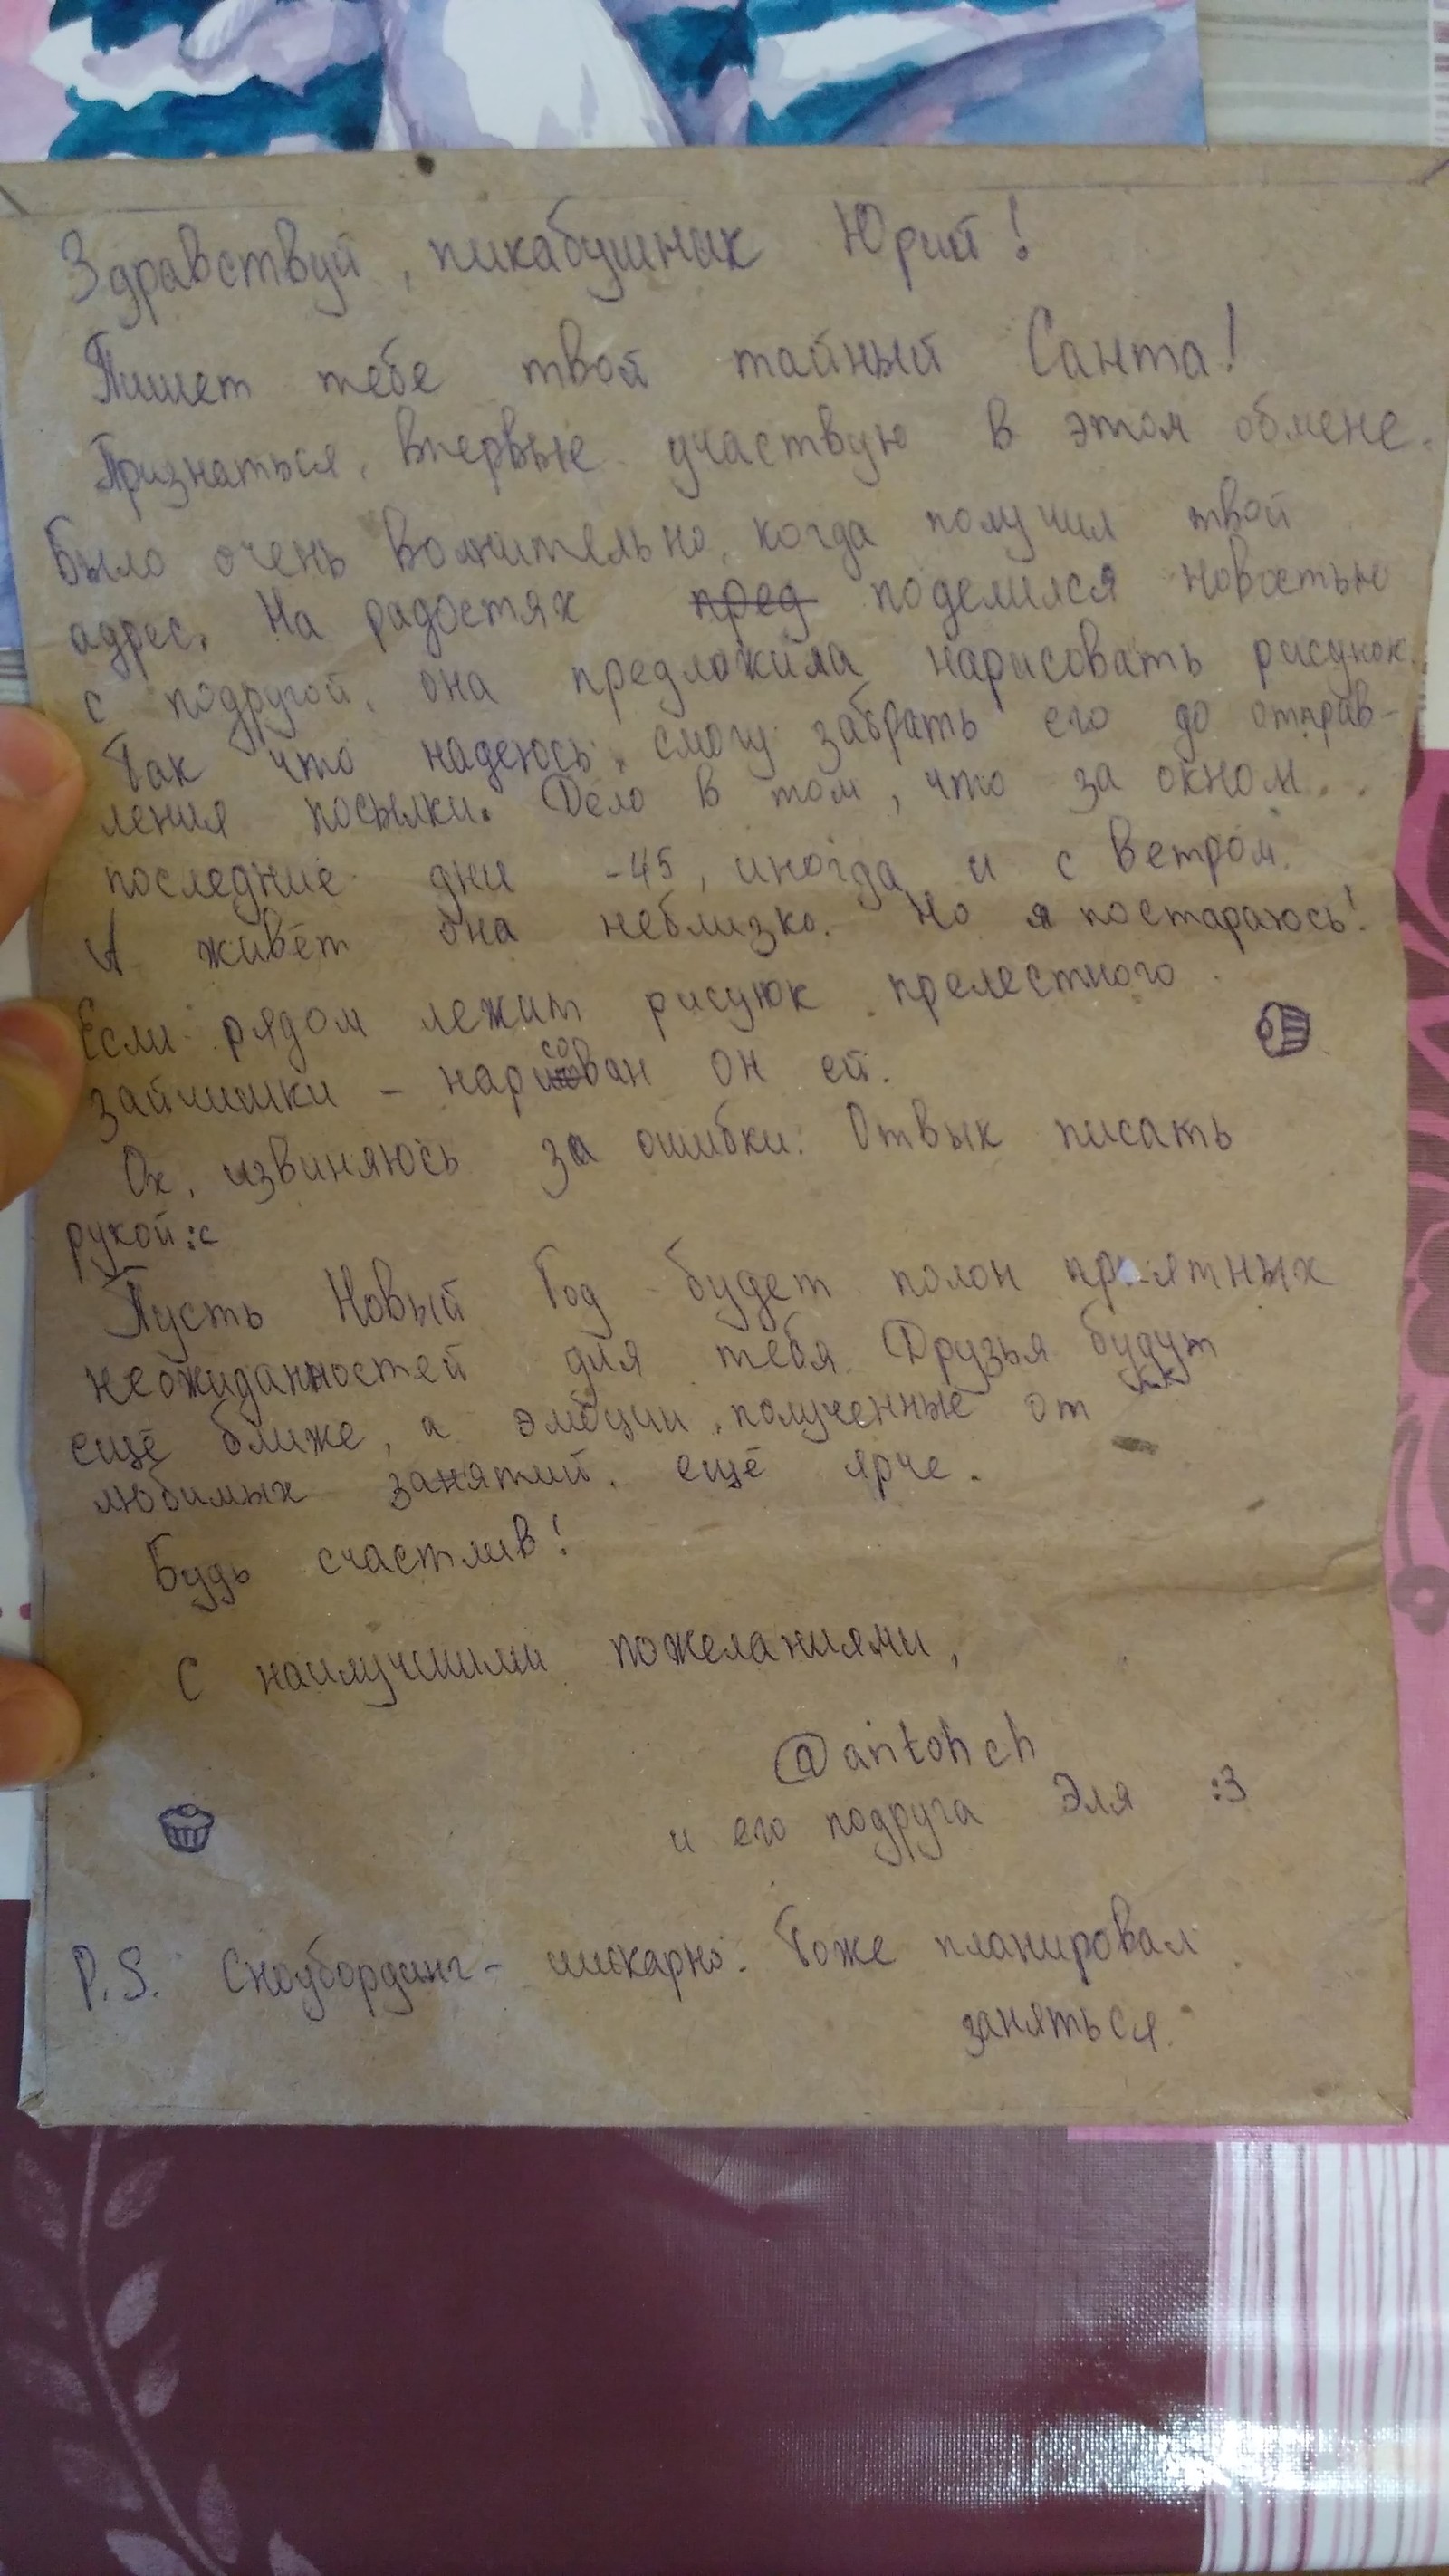 Здравствуй, пикабушник Юрий!
Пишет тебе твой тайный Санта!
Признаться, впервые участвую в этом обмене.
Было очень волнительно, когда получил твой
адрес. На радостях пред поделился новостью
с подругой, она предложила нарисовать рисунок.
Так что надеюсь, смогу забрать его до отправ-
ления посылки. Дело в том, что за окном
последние дни -45, иногда и с ветром.
А живёт она неблизко. Но я постараюсь!
Если рядом лежит рисунок прелестного
зайчишки - нарисован он ей.
Ох, извиняюсь за ошибки. Отвык писать
рукой :с
Пусть Новый Год будет полон приятных
неожиданностей для тебя. Друзья будут
ещё ближе, а эмоции, полученные от
любимых занятий, ещё ярче.
Будь счастлив!
С наилучшими пожеланиями,
@antohch
и его подруга Эля :3
P.S. Сноубординг - шикарно. Тоже планировал
заняться.